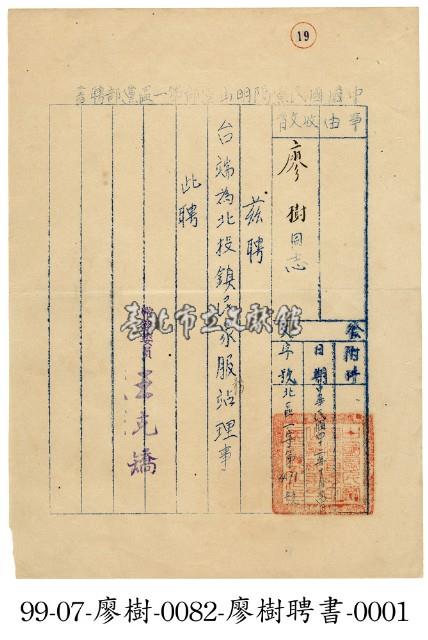 19
中國國民黨陽明山黨部第一區黨部聘書
事由
收文者
廖樹同志
發附件
日期
中華民國四十二年
文字號
北區一字第471號
茲聘
台端為北投鎮民眾服站理事
此聘
常務委員
王先矯
臺北市立文獻館
99-07-廖樹-0082-廖樹聘書-0001